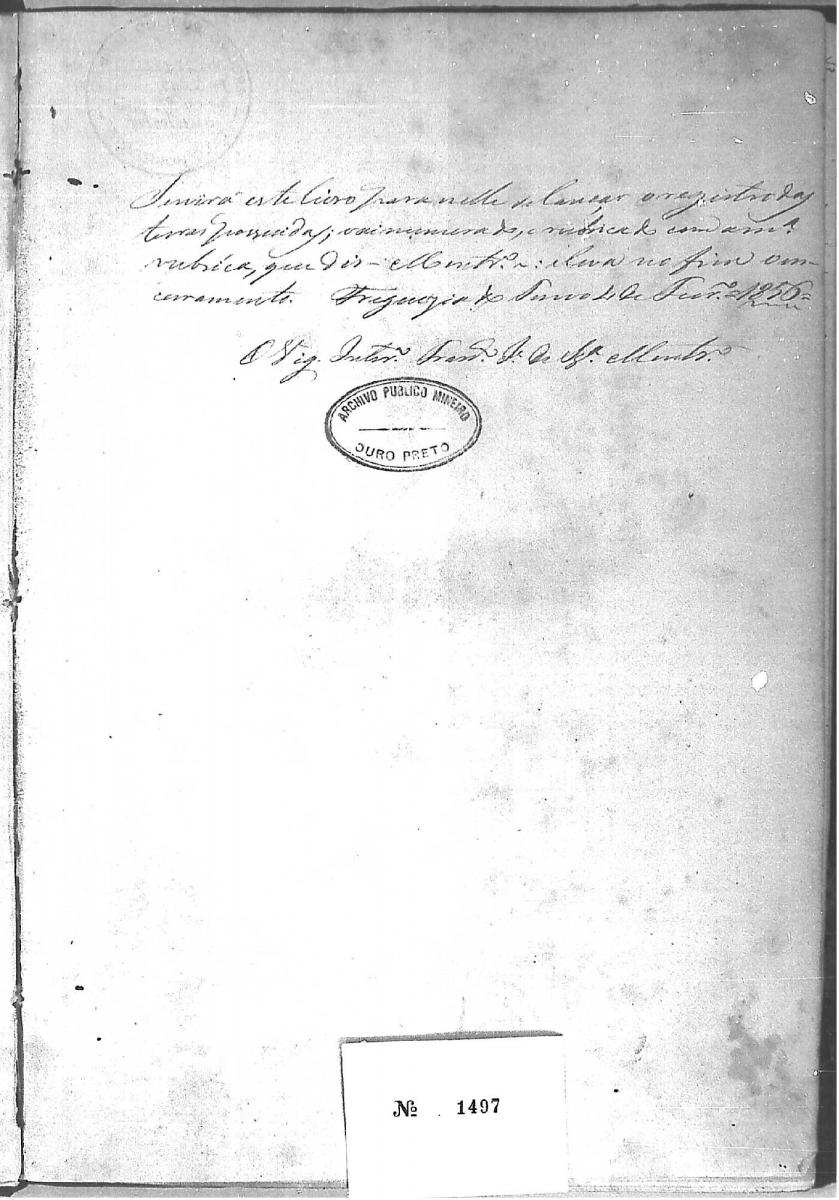 Servirá este livro para nelle se lançar o registro das
terras possuidas; vai numerado, e rubricado com a m.ª
rubrica, que diz - Montr.º e leva no fim o en-
cerramento. Freguezia do Turvo 4 de Fevr.º 1856 =
O Vig. Inter.º J.e de Montr.º
ARCHIVO PUBLICO MINEIRO
OURO PRETO
Nº 1497